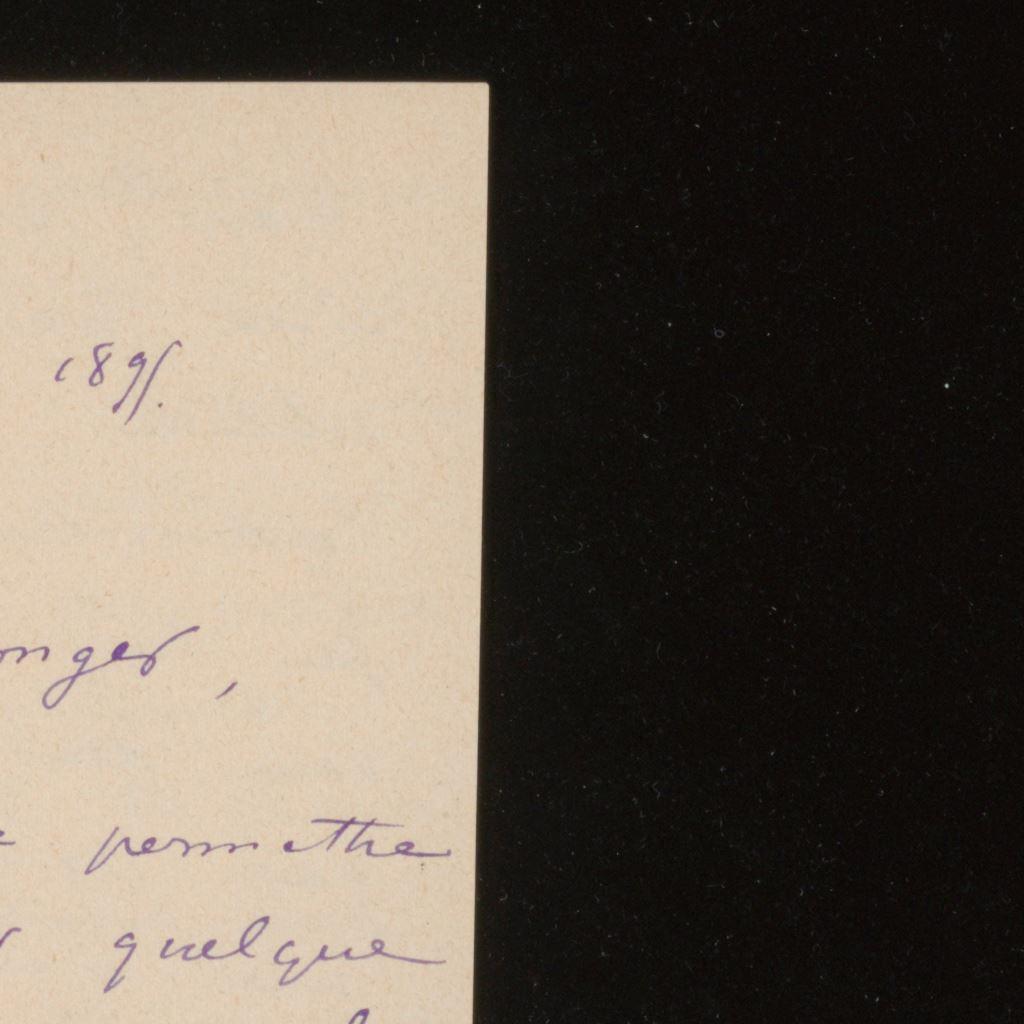 1895.
onger,
permettre
quelque